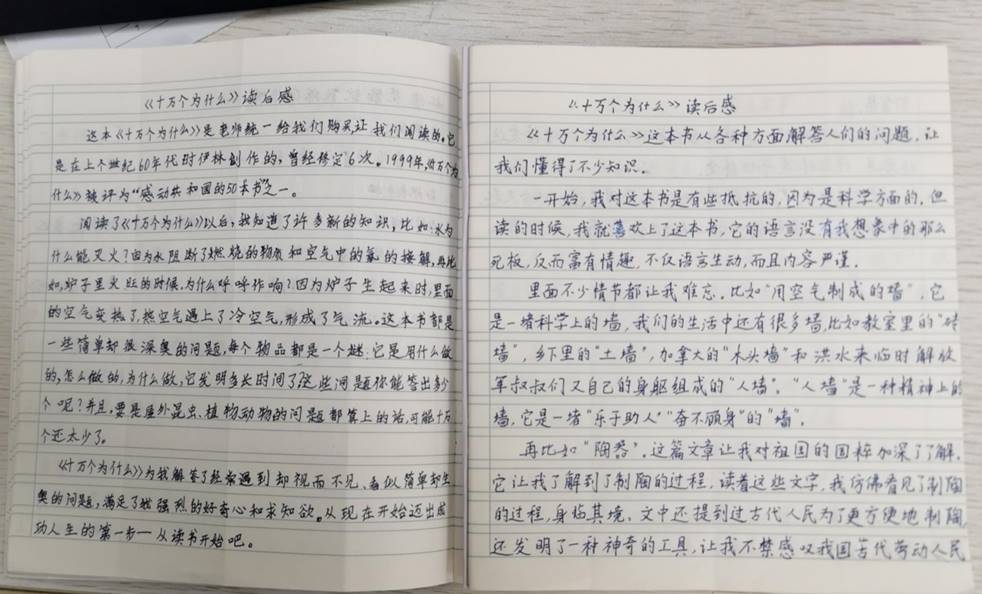 《十万个为什么》读后感
这本《十万个为什么》是老师统一给我们购买让我们阅读的。它
是在上个世纪60年代时伊林创作的，曾经修定6次。1999年，《十万个为
什么》被评为“感动共和国的50本书”之一。
阅读了《十万个为什么》以后，我知道了许多新的知识，比如：水为
什么能灭火？因为水阻断了燃烧的物质和空气中的氧的接触，再比
如，炉子里火旺的时候，为什么呼呼作响？因为炉子生起来时，里面
的空气变热了，热空气遇上了冷空气，形成了气流。这本书都是
一些简单却很深奥的问题，每个物品都是一个谜：它是用什么做
的，怎么做的，为什么做，它发明多长时间了？这些问题你能答出多少
个呢？并且，要是屋外昆虫、植物动物的问题都算上的话，可能十万
个还太少了。
《十万个为什么》为我解答了经常遇到却视而不见，看似简单却深
奥的问题，满足了我强烈的好奇心和求知欲。从现在开始迈出成
功人生的第一步——从读书开始吧。
《十万个为什么》读后感
《十万个为什么》这本书从各种方面解答人们的问题，让
我们懂得了不少知识。
一开始，我对这本书是有些抵抗的，因为是科学方面的，但
读的时候，我就喜欢上了这本书，它的语言没有我想象中的那么
死板，反而富有情趣，不仅语言生动，而且内容严谨。
里面不少情节都让我难忘。比如“用空气制成的墙”，它
是一堵科学上的墙，我们的生活中还有很多墙，比如教室里的“砖
墙”，乡下里的“土墙”，加拿大的“木头墙”和洪水来临时解放
军叔叔们又自己的身躯组成的“人墙”。“人墙”是一种精神上的
墙，它是一堵“乐于助人”“奋不顾身”的“墙”。
再比如“陶器”。这篇文章让我对祖国的国粹加深了了解，
它让我了解到了制陶的过程，读着这些文字，我仿佛看见了制陶
的过程，身临其境，文中还提到过古代人民为了更方便地制陶
还发明了一种神奇的工具，让我不禁感叹我国古代劳动人民